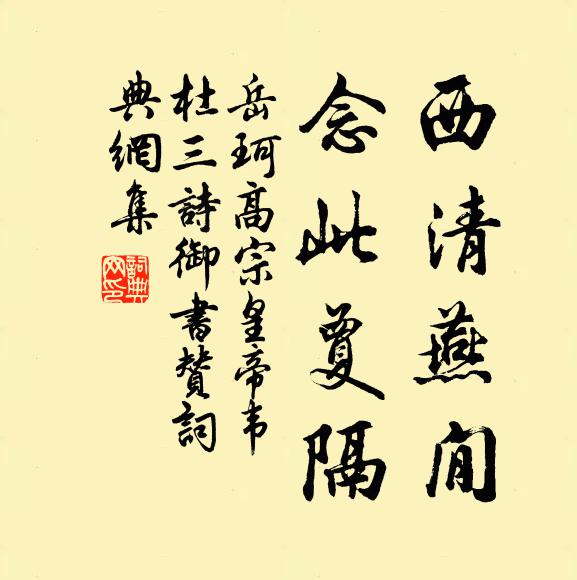 西清燕閒
念此夐隔
岳珂高宗皇帝韦
杜三詩御書贊詞
典網集
詞典
网印